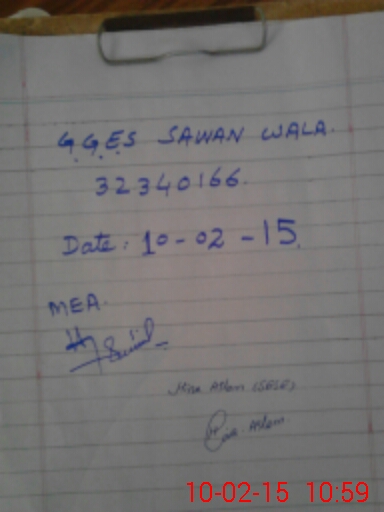 G.G.E.S SAWAN WALA.
32340166.
Date: 10-02-15.
MEA.
Hira Aslam (SESE)
Hira Aslam.
10-02-15 10:59